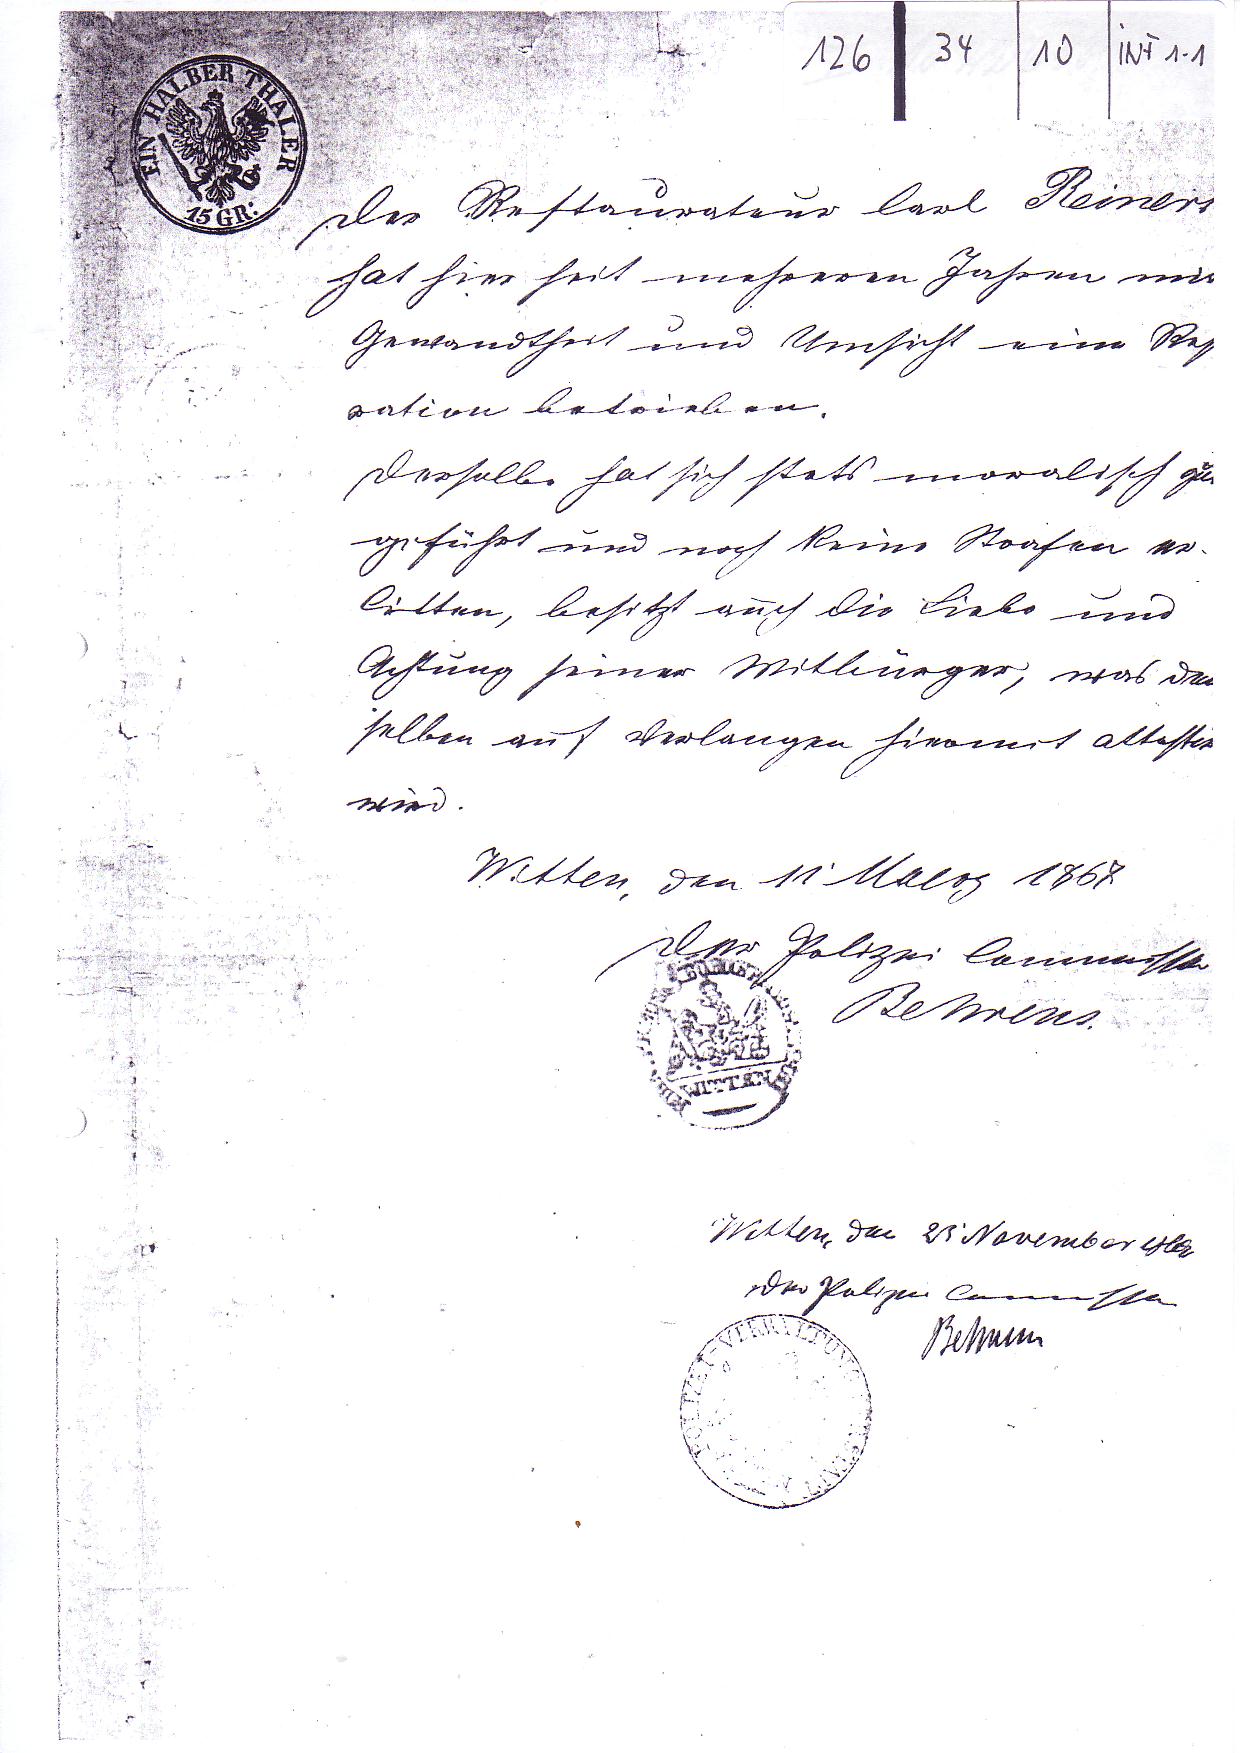 126 34 10 INT 1-1
EIN HALBER THALER
15 GR:
Der Restaurateur Carl Reiners
hat hier seit mehreren Jahren mit
Gewandtheit und Umsicht eine
ration betrieben.
Derselbe hat sich stets moralisch gu
geführt und noch keine Strafen er-
litten, besitzt auch die Liebe und
Achtung seiner Mitbürger, was dem
selben auf Verlangen hiermit attestir
wird.
Witten, den 11' Maerz 1867
Der Polizei Commissar
Behrens.
WITTEN
Witten, den 23' November
Der Polizei Commissar
Behrens
POLIZEI-VERWALTUNG